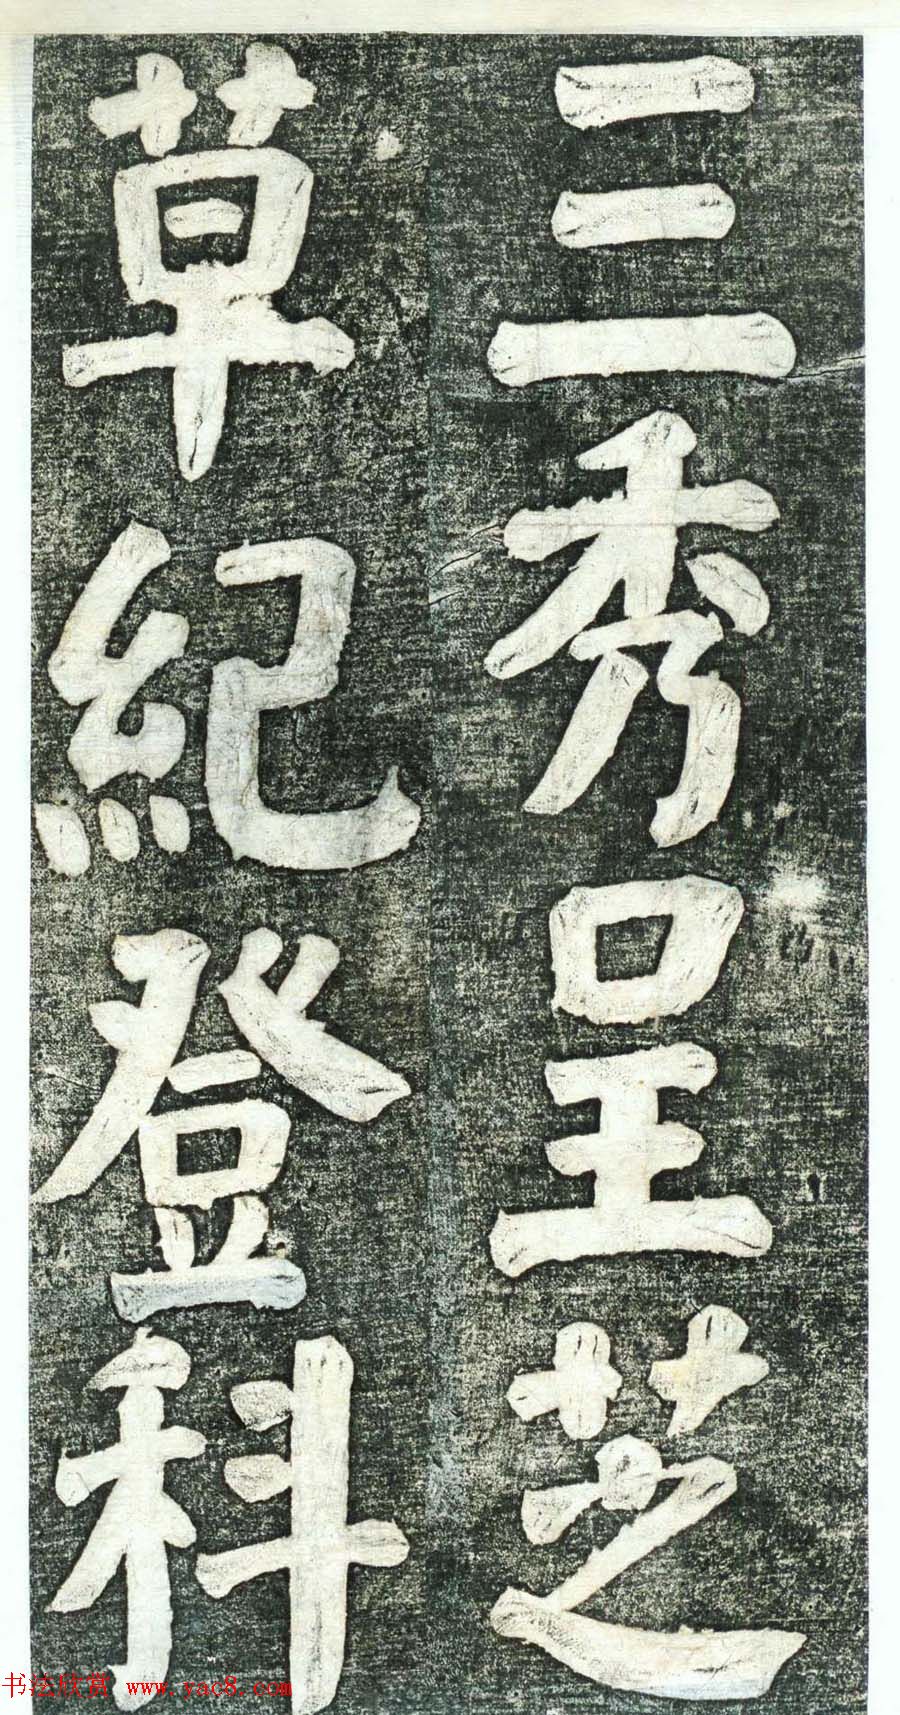 三秀呈芝
草紀登科
书法欣赏 www.yac8.com